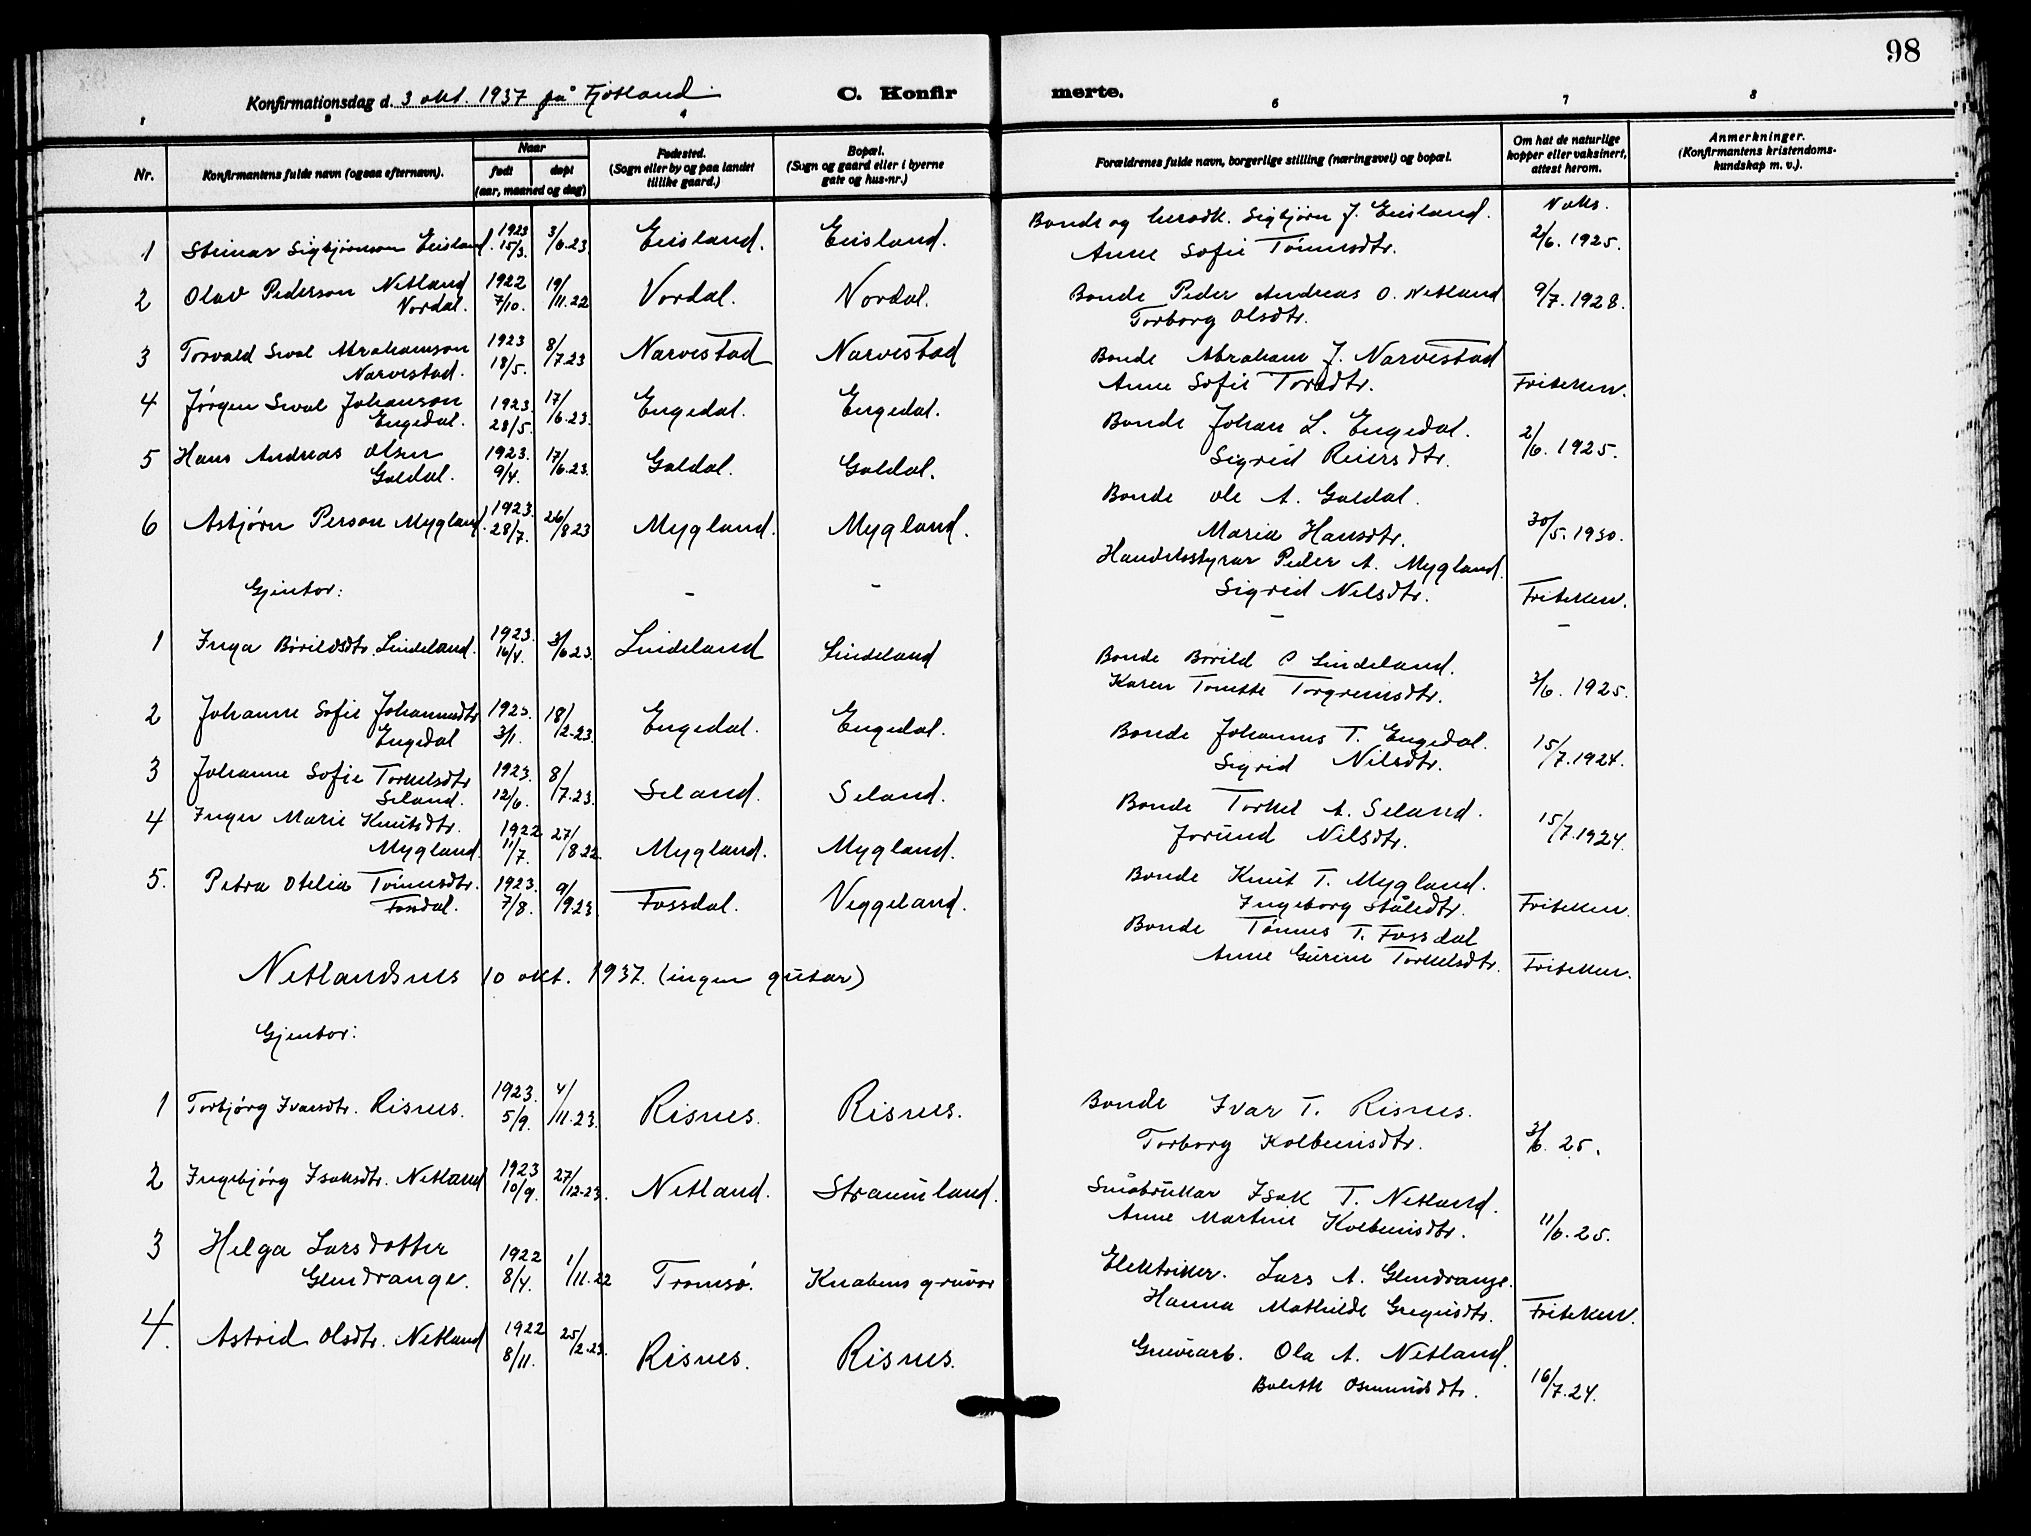 98
Konfirmationsdag d. 3 okt. 1937 på Fjotland.
C. Konfirmerte.
1 2 3 4 6 7 8
Nr.
Konfirmantens fulde navn (ogsaa efternavn).
Naar
født
døpt
(aar, maaned og dag)
Fødested.
(Sogn eller by og paa landet
tillike gaard.)
Bopæl.
(Sogn og gaard eller i byerne
gate og hus-nr.)
Forældrenes fulde navn, borgerlige stilling (næringsvei) og bopæl.
Om hat de naturlige
kopper eller vaksinert,
attest herom.
Anmerkninger.
(Konfirmantens kristendoms-
kundskap m. v.).
1 Steinar Sigbjørnson Eiesland. 1923 15/3. 3/6.23. Eiesland. Eiesland. Bonde og Sigbjørn J. Eiesland. Vaks.
Anne Sofie Tønnesdtr. 2/6. 1925.
2 Olav Pederson Netland 1922 19/11.22 Vordal. Nordal. Bonde Peder Andreas O. Netland 9/7. 1928.
Nordal. 7/10. Torborg Olsdtr.
3 Torvald Sval Abrahamson 1923 8/7.23 Narvestad Narvestad Bonde Abraham J. Narvestad
Narvestad. 18/5. Anne Sofie Toredtr. Friteken.
4 Jørgen Sval Johanson 1923. 17/6.23. Engedal. Engedal. Bonde Johan L. Engedal.
Engedal. 28/5. Sigrid Reiersdtr. 2/6. 1925.
5 Hans Andreas Olsen 1923. 17/6.23. Galdal. Galdal. Bonde Ole A. Galdal.
Galdal. 9/4. Maria Hansdtr. 30/5. 1930.
6 Asbjørn Person Mygland. 1923. 28/7. 26/8 23 Mygland. Mygland. Handelsstyrar Peder A. Mygland.
Sigrid Nilsdtr. Friteken.
Gjentor: - - - -
1 Inga Bårildsdtr. Lindeland. 1923. 16/4. 3/6 23. Lindeland Lindeland Bonde Bårild P Lindeland.
Karen Tonette Torgrimsdtr. 3/6. 1925.
2 Johanne Sofie Johannesdtr 1923. 18/2.23. Engedal. Engedal. Bonde Johannes T. Engedal. 15/7. 1924.
Engedal 3/1. Sigrid Nilsdtr.
3 Johanne Sofie Torkelsdtr 1923. 8/7.23. Seland. Seland. Bonde Torkel A. Seland.
Seland. 12/6. Jorund Nilsdtr. 15/7. 1924.
4 Inger Marie Knutsdtr. 1922 27/8 22. Mygland. Mygland. Bonde Knut T. Mygland.
Mygland. 11/7. Ingeborg Ståledtr. Friteken.
5. Petra Otelia Tønnesdtr. 1923. 9/9.23. Fossdal. Veggeland. Bonde Tønnes T. Fossdal
Fossdal. 7/8. Anne Gurine Torkelsdtr. Friteken.
Netlandsnes 10 okt. 1937. (ingen gutar)
Gjentor:
1 Torbjørg Ivarsdtr. Risnes. 1923. 5/9. 4/11.23. Risnes. Risnes. Bonde Ivar T. Risnes.
Torborg Kolbeinsdtr. 3/6. 25.
2 Ingebjørg Isaksdtr. Netland 1923 10/9. 27/12.23. Netland. Straumland. Småbrukar Isak T. Netland.
Anne Martine Kolbeinsdtr. 11/6. 25.
3 Helga Larsdotter 1922 1/11.22 Tromsø. Knabens gruvor Elektriker. Lars A. Glendrange.
Glendrange. 8/4. Hanna Mathilde Gregusdtr. Friteken.
4. Astrid Olsdtr. Netland 1922 8/11. 25/2.23. Risnes. Risnes. Gruvearb. Ola A. Netland.
Bolette Osmundsdtr. 16/7. 24.